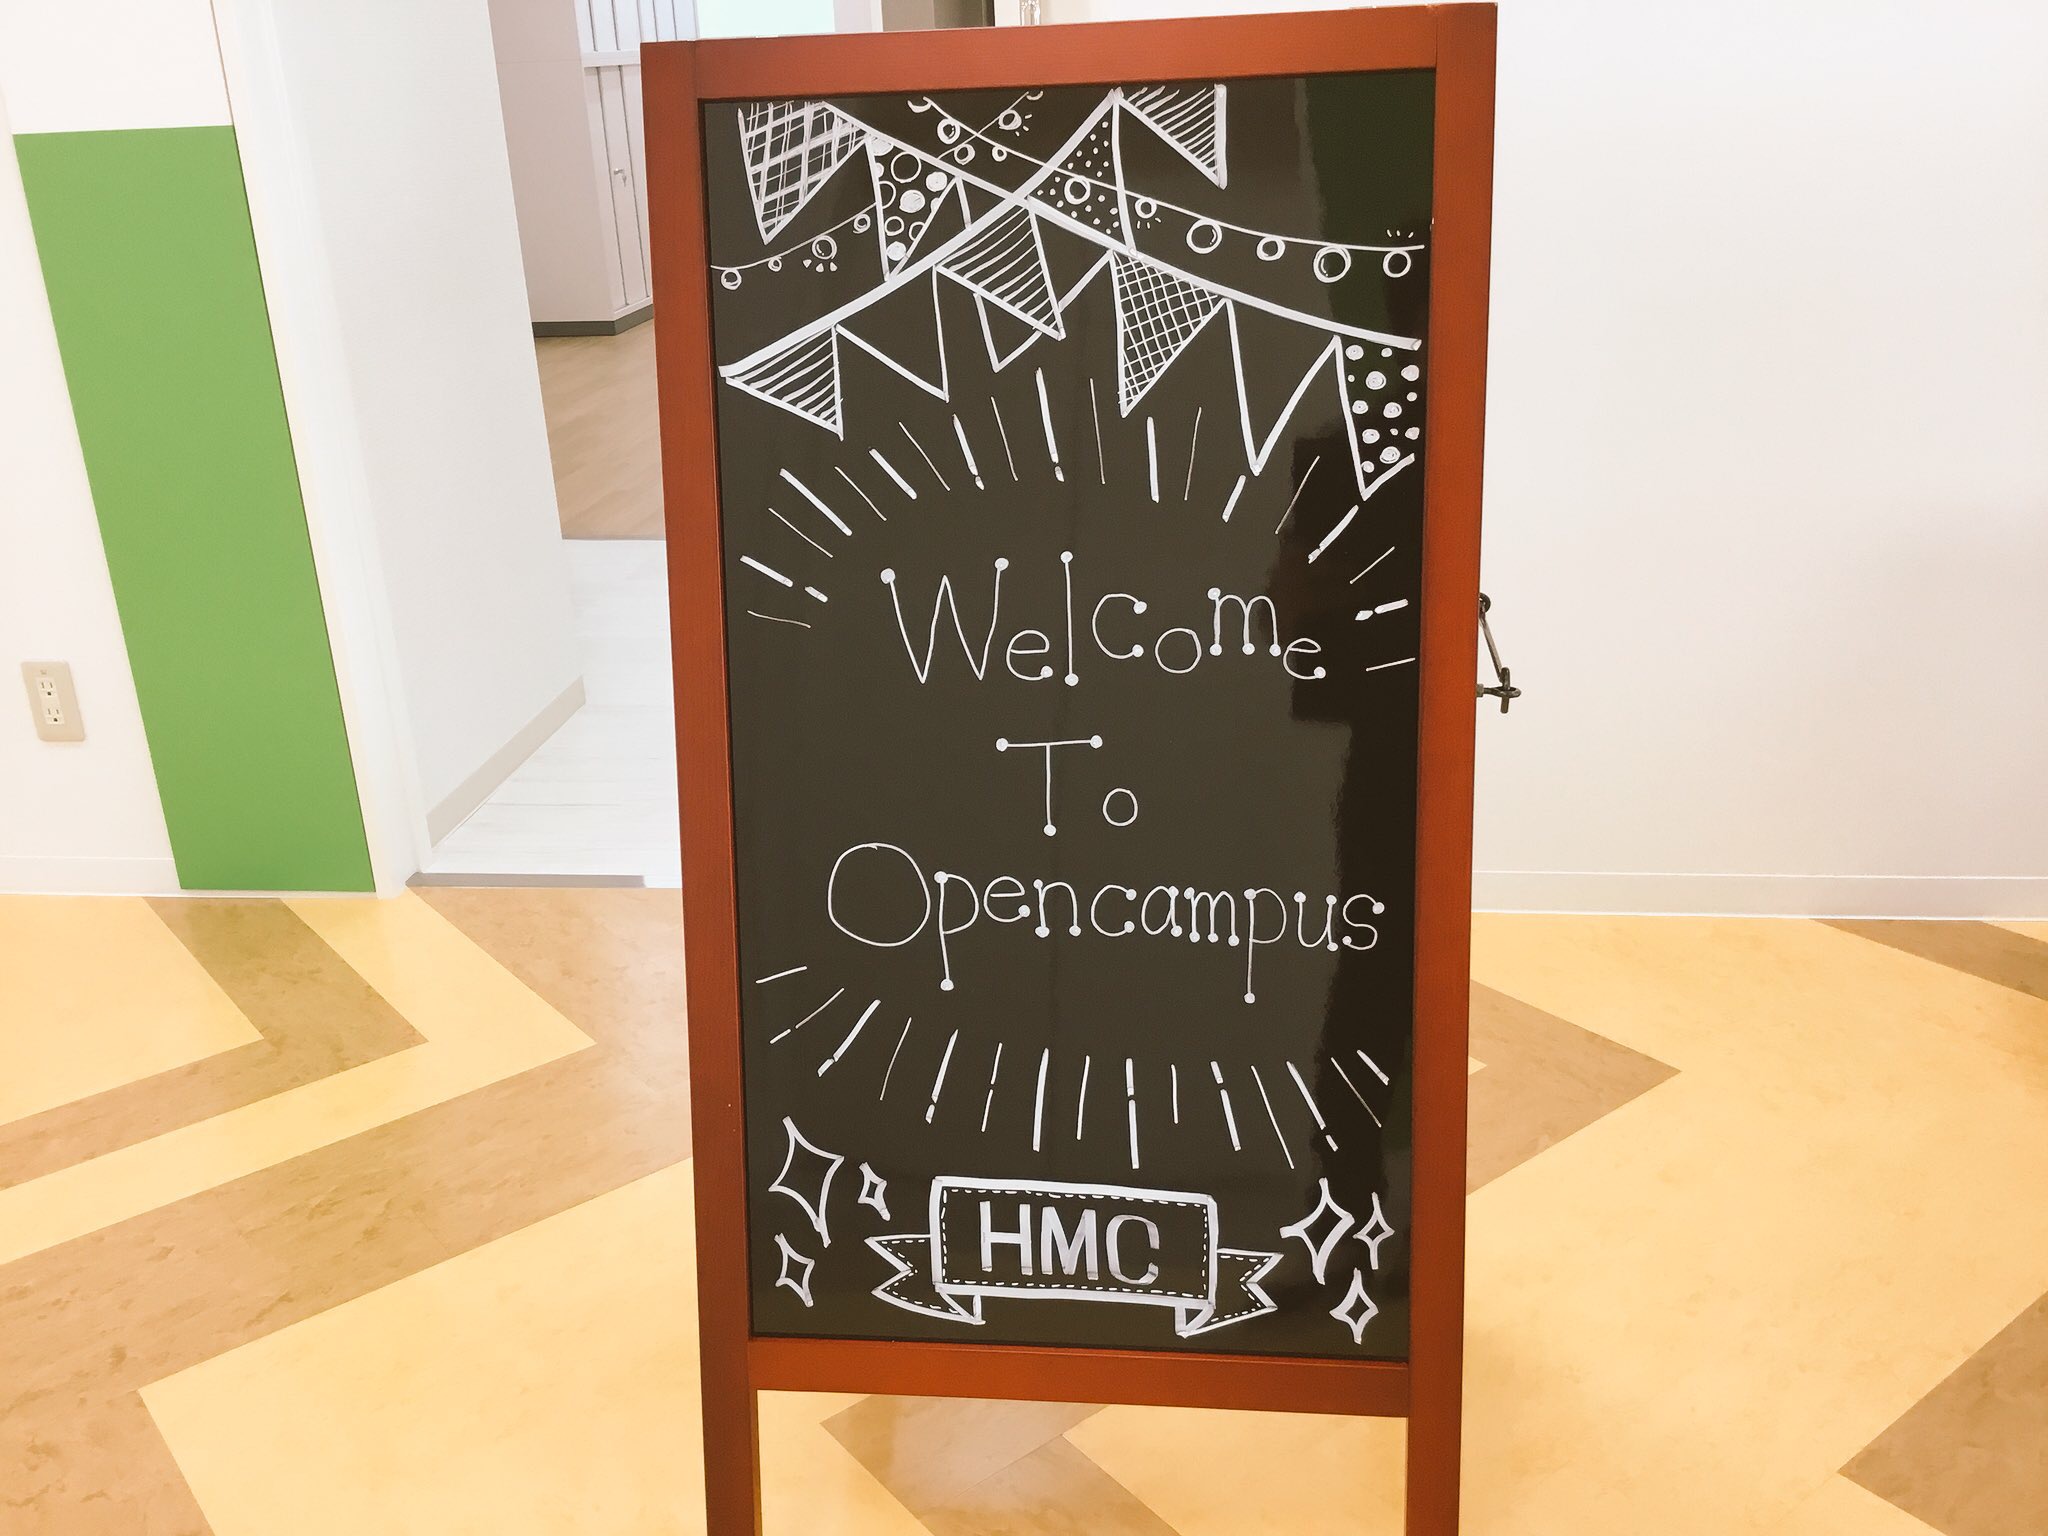 Welcome
To
Opencampus
HMC